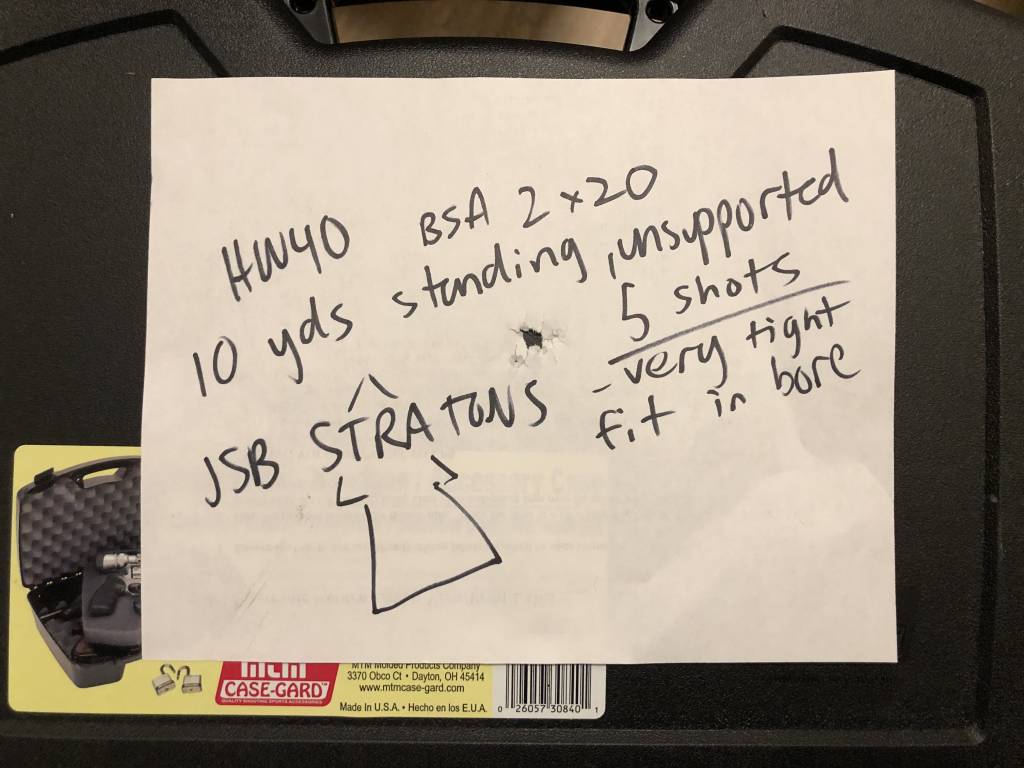 HW40 BSA 2x20
10 yds standing, unsupported
5 shots
JSB STRATONS
- very tight
fit in bore
MTM
CASE-GARD™
QUALITY SHOOTING SPORTS ACCESSORIES
MTM Molded Products Company
3370 Obco Ct • Dayton, OH 45414
www.mtmcase-gard.com
Made in U.S.A. • Hecho en los E.U.A.
0 26057 30840 1